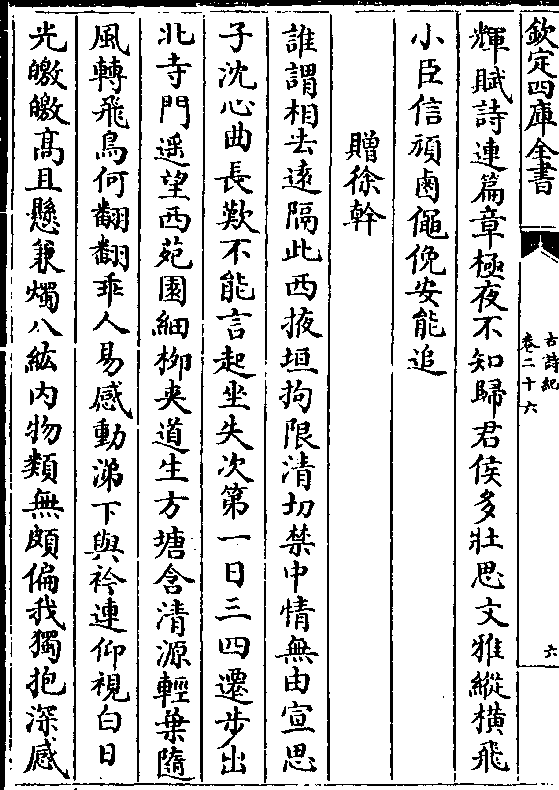 欽定四庫全書
古詩紀
卷二十六
六
輝賦詩連篇章極夜不知歸君侯多壯思文雅縱橫飛
小臣信頑鹵僶俛安能追
贈徐幹
誰謂相去遠隔此西掖垣拘限清切禁中情無由宣思
子沈心曲長歎不能言起坐失次第一日三四遷步出
北寺門遥望西苑園細栁夾道生方塘含清源輕葉隨
風轉飛鳥何翻翻乖人易感動涕下與衿連仰視白日
光皦皦髙且懸兼燭八紘内物類無頗偏我獨抱深感